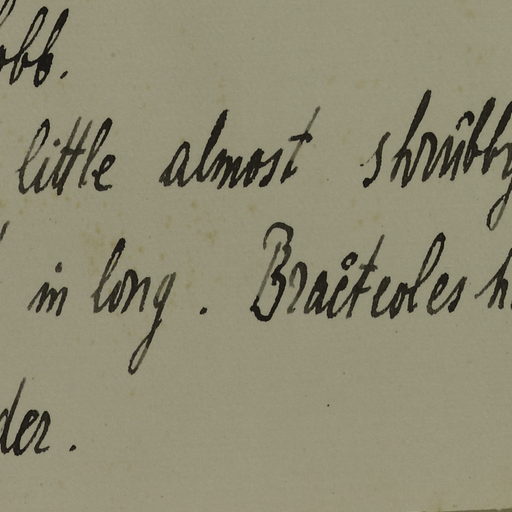 obb.
little almost shrubby
in long. Bracteoles h
der.